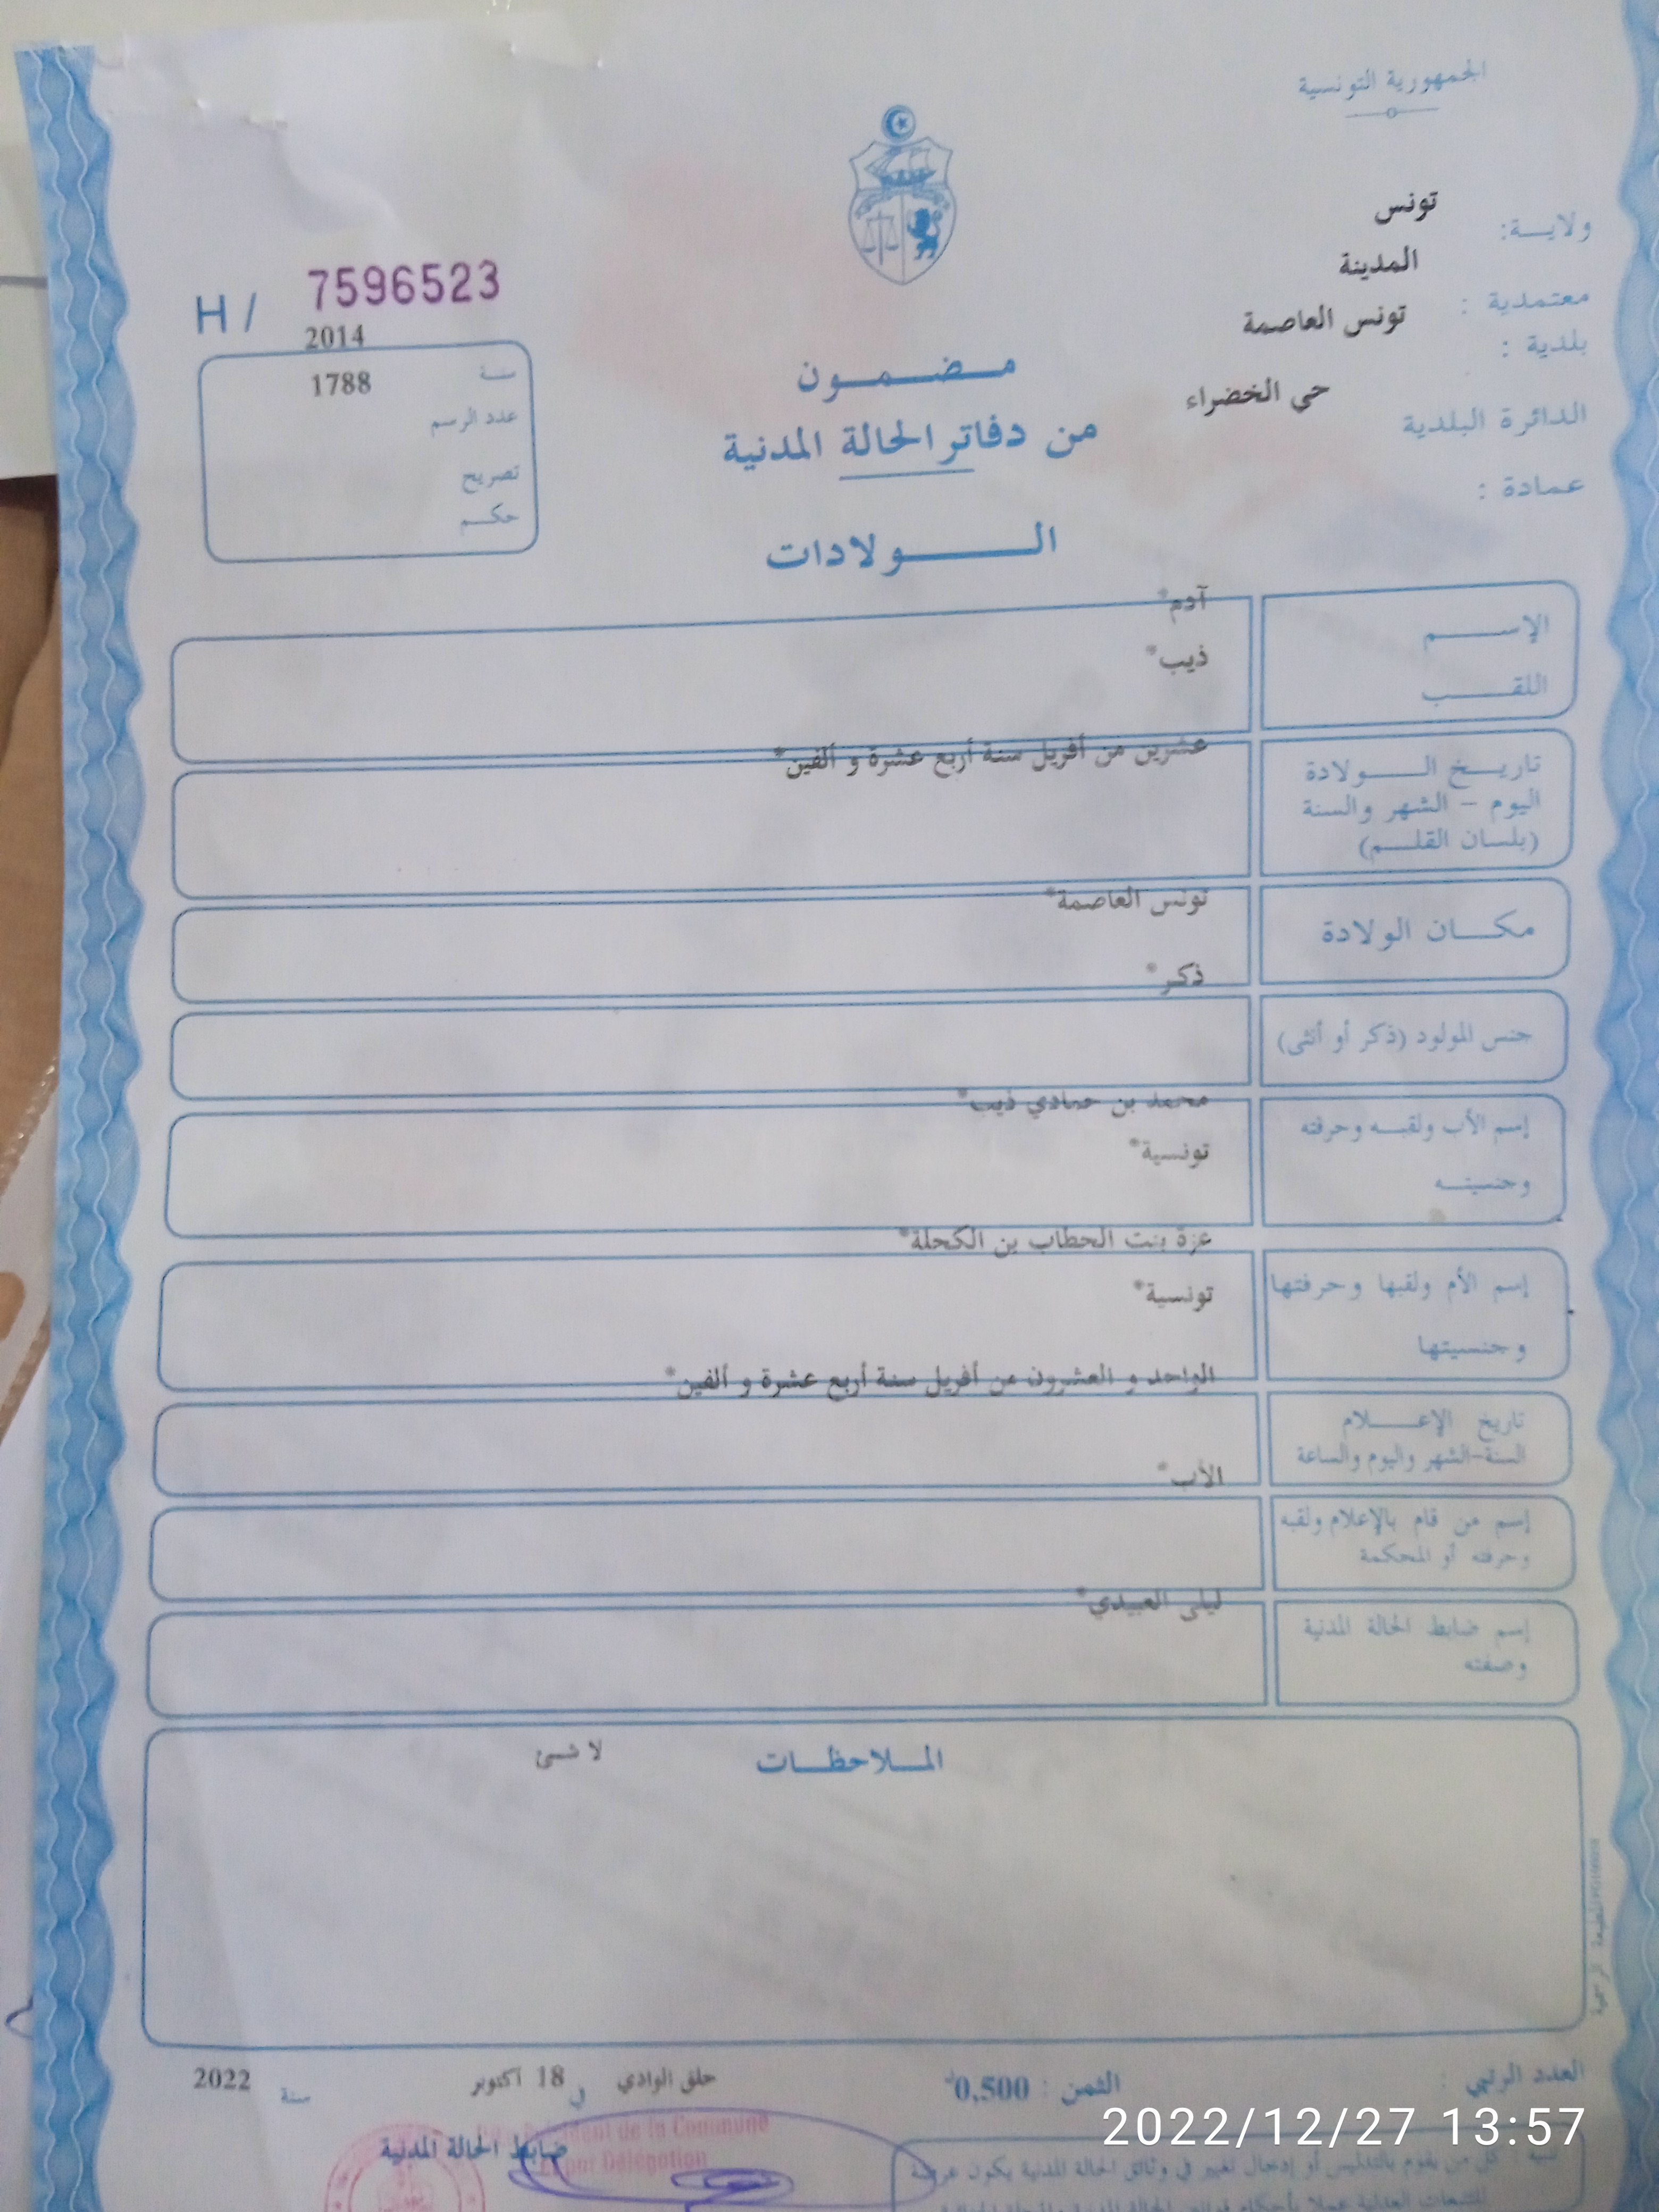 الجمهورية التونسية
ولاية: تونس
معتمدية : المدينة
بلدية : تونس العاصمة
الدائرة البلدية حي الخضراء
عمادة :
H / 7596523
2014
سنة
1788
عدد الرسم
تصريح
حكم
مضمون
من دفاتر الحالة المدنية
الولادات
الإسم آدم*
اللقب ذيب*
تاريخ الولادة عشرين من أفريل سنة أربع عشرة و ألفين*
اليوم - الشهر والسنة
(بلسان القلم)
مكان الولادة تونس العاصمة*
جنس المولود (ذكر أو أنثى) ذكر*
إسم الأب ولقبه وحرفته محمد بن حمادي ذيب*
وجنسيته تونسية*
إسم الأم ولقبها وحرفتها عزة بنت الحطاب بن الكحلة*
وجنسيتها تونسية*
تاريخ الإعلام الواحد و العشرون من أفريل سنة أربع عشرة و ألفين*
السنة-الشهر واليوم والساعة
إسم من قام بالإعلام ولقبه الأب*
وحرفته أو المحكمة
إسم ضابط الحالة المدنية ليلى العبيدي*
وصفته
الملاحظات لا شئ
المطبعة الرسمية
العدد الرتبي :
الثمن : 0,500د
حلق الوادي في 18 اكتوبر سنة 2022
ضابط الحالة المدنية
Président de la Commune
par Délégation
2022/12/27 13:57
تنبيه : كل من يقوم بالتدليس أو إدخال تغيير في وثائق الحالة المدنية يكون عرضة
للتتبعات العدلية عملا بأحكام